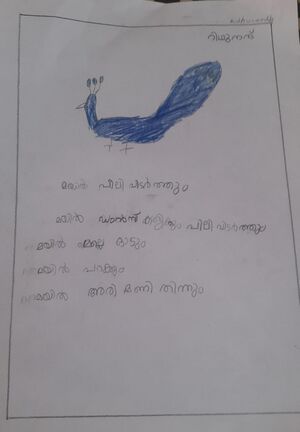 റിഥുനന്ദ്
മയിൽ പീലി വിടർത്തും
മയിൽ ഡാൻസ് കളിക്കും പീലി വിടർത്തും
മയിൽ മെല്ലെ ഓടും
മയിൽ പറക്കും
മയിൽ അരി മണി തിന്നും